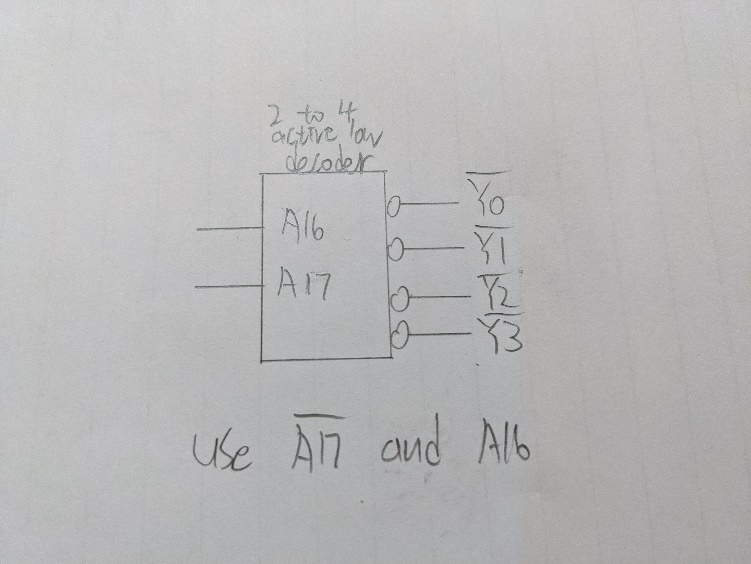 2 to 4
active low
decoder
A16
A17
Y̅0̅
Y̅1̅
Y̅2̅
Y̅3̅
use A̅1̅7̅ and A16